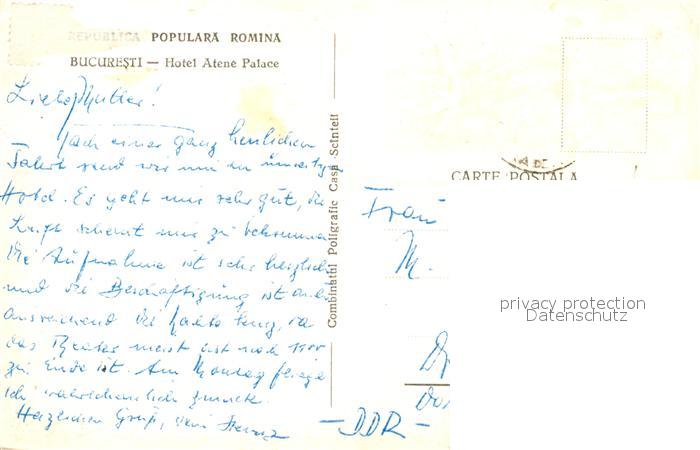 REPUBLICA POPULARĂ ROMINĂ
BUCUREȘTI — Hotel Atene Palace
Liebe Mutter!
Nach einer ganz herrlichen
Fahrt sind wir nun in
Hotel. Es geht mir sehr gut, die
Luft scheint mir zu bekommen
Die Aufnahme ist sehr herzlich
und die Beschäftigung ist
ausreichend die halbe
das Theater meist erst nach 11 00
zu Ende ist. Am Montag fliege
ich wahrscheinlich zurück.
Herzlichen Gruß, Dein
Combinatul Poligrafic Casa Scînteii
CARTE POSTALĂ
Frau
M.
privacy protection
Datenschutz
Dr
- DDR -